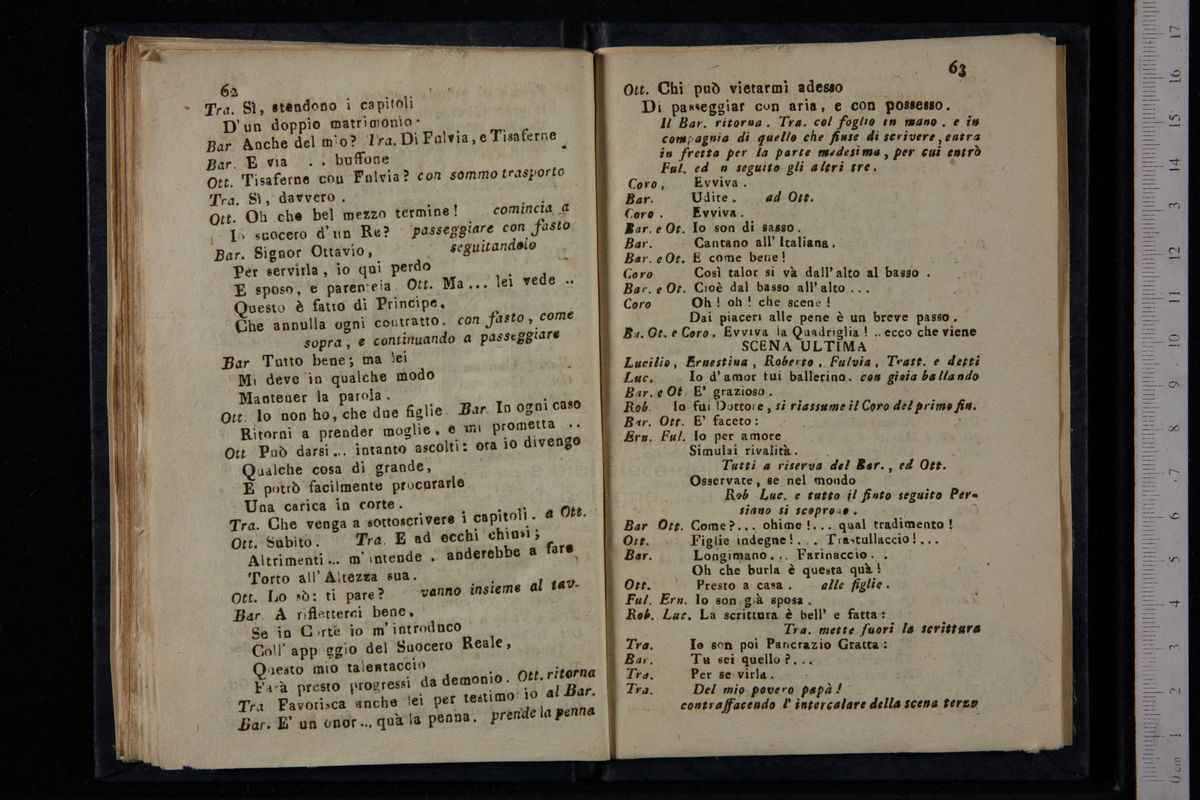 62
Tra. Sì, stendono i capitoli
D'un doppio matrimonio.
Bar. Anche del mio? Tra. Di Fulvia, e Tisaferne
Bar. E via . . buffone
Ott. Tisaferne con Fulvia? con sommo trasporto
Tra. Sì, davvero.
Ott. Oh che bel mezzo termine! comincia a
Io suocero d'un Re? passeggiare con fasto
Bar. Signor Ottavio, seguitandolo
Per servirla, io qui perdo
E sposo, e parentela. Ott. Ma... lei vede ..
Questo è fatto di Principe,
Che annulla ogni contratto. con fasto, come
sopra, e continuando a passeggiare
Bar Tutto bene; ma lei
Mi deve in qualche modo
Mantener la parola.
Ott. Io non ho, che due figlie Bar In ogni caso
Ritorni a prender moglie, e mi prometta ..
Ott Può darsi... intanto ascolti: ora io divengo
Qualche cosa di grande,
E potrò facilmente procurarle
Una carica in corte.
Tra. Che venga a sottoscrivere i capitoli. a Ott.
Ott. Subito. Tra. E ad occhi chiusi;
Altrimenti... m'intende . anderebbe a fare
Torto all'Altezza sua.
Ott. Lo sò: ti pare? vanno insieme al tav.
Bar. A rifletterci bene,
Se in Corte io m'introduco
Coll'appoggio del Suocero Reale,
Questo mio talentaccio
Farà presto progressi da demonio. Ott. ritorna
Tra Favorisca anche lei per testimonio al Bar.
Bar. E' un onor... quà la penna. prende la penna
63
Ott. Chi può vietarmi adesso
Di passeggiar con aria, e con possesso.
Il Bar. ritorna. Tra. col foglio in mano. e in
compagnia di quello che finse di scrivere, entra
in fretta per la parte medesima, per cui entrò
Ful. ed n seguito gli altri tre.
Coro, Evviva.
Bar. Udite. ad Ott.
Coro. Evviva.
Bar. e Ot. Io son di sasso.
Bar. Cantano all'Italiana.
Bar. e Ot. E come bene!
Coro Così talor si và dall'alto al basso.
Bar. e Ot. Cioè dal basso all'alto ...
Coro Oh! oh! che scene!
Dai piaceri alle pene è un breve passo.
Ba. Ot. e Coro. Evviva la Quadriglia! ..ecco che viene
SCENA ULTIMA
Lucilio, Ernestina, Roberto, Fulvia, Trast. e detti
Luc. Io d'amor fui ballerino. con gioia ballando
Bar. e Ot. E' grazioso.
Rob. Io fui Dottore, si riassume il Coro del primo fin.
Bar. Ott. E' faceto:
Ern. Ful. Io per amore
Simulai rivalità.
Tutti a riserva del Bar., ed Ott.
Osservate, se nel mondo
Rob Luc. e tutto il finto seguito Per-
siano si scoprono.
Bar Ott. Come?... ohime!... qual tradimento!
Ott. Figlie indegne!... Trastullaccio!...
Bar. Longimano... Farinaccio..
Oh che burla è questa quà!
Ott. Presto a casa. alle figlie.
Ful. Ern. Io son già sposa.
Rob. Luc. La scrittura è bell'e fatta:
Tra. mette fuori la scrittura
Tra. Io son poi Pancrazio Gratta:
Bar. Tu sei quello?...
Tra. Per servirla.
Tra. Del mio povero papà!
contraffacendo l'intercalare della scena terzo